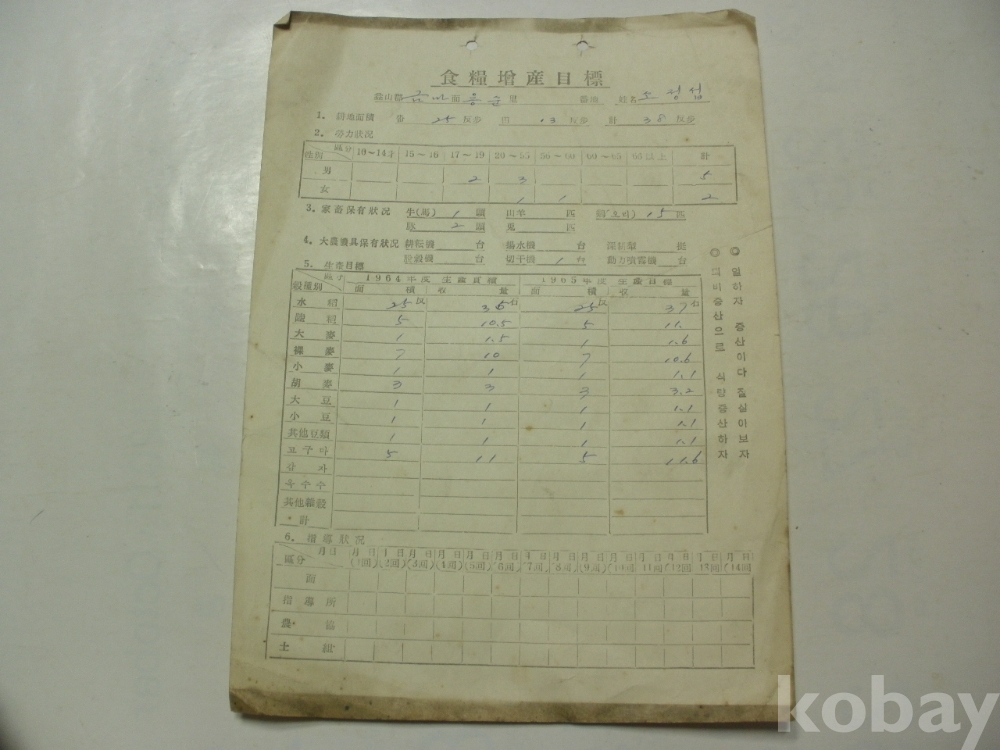 食糧增產目標
益山郡 금마 面 용순 里 番地 姓名 조성섭
1. 耕地面積 畓 25 反步 田 13 反步 計 38 反步
2. 勞力狀況
區分 10~14才 15~16 17~19 20~55 56~60 60~65 65以上 計
性別
男 2 3 5
女 1 1 2
3. 家畜保有狀況 牛(馬) 1 頭 山羊 匹 鷄(오리) 15 匹
豚 2 頭 兎 匹
4. 大農機具保有狀況 耕耘機 台 揚水機 台
脫穀機 台 切干機 1 台 動力噴霧機 台
5. 生產目標
區分 1964年度 生產實積 1965年度 生產目標
穀種別 面積 收量 面積 收量
水稻 25反 36石 25反 37石
陸稻 5 10.5 5 11.
大麥 1 1.5 1 1.6
裸麥 7 10 7 10.6
小麥 1 1 1 1.1
胡麥 3 3 3 3.2
大豆 1 1 1 1.1
小豆 1 1 1 1.1
其他豆類 1 1 1 1.1
고구마 5 11 5 11.6
감자
옥수수
其他雜穀
計
◎ 일하자 증산이다 잘살아보자
◎ 퇴비증산으로 식량증산하자
6. 指導狀況
月日 月日 月日 月日 月日 月日 月日 月日 月日 月日 月日 月日 月日 月日 月日
區分 (1回) (2回) (3回) (4回) (5回) (6回) (7回) (8回) (9回) (10回) (11回) (12回) (13回) (14回)
面
指導所
農協
土組
kobay